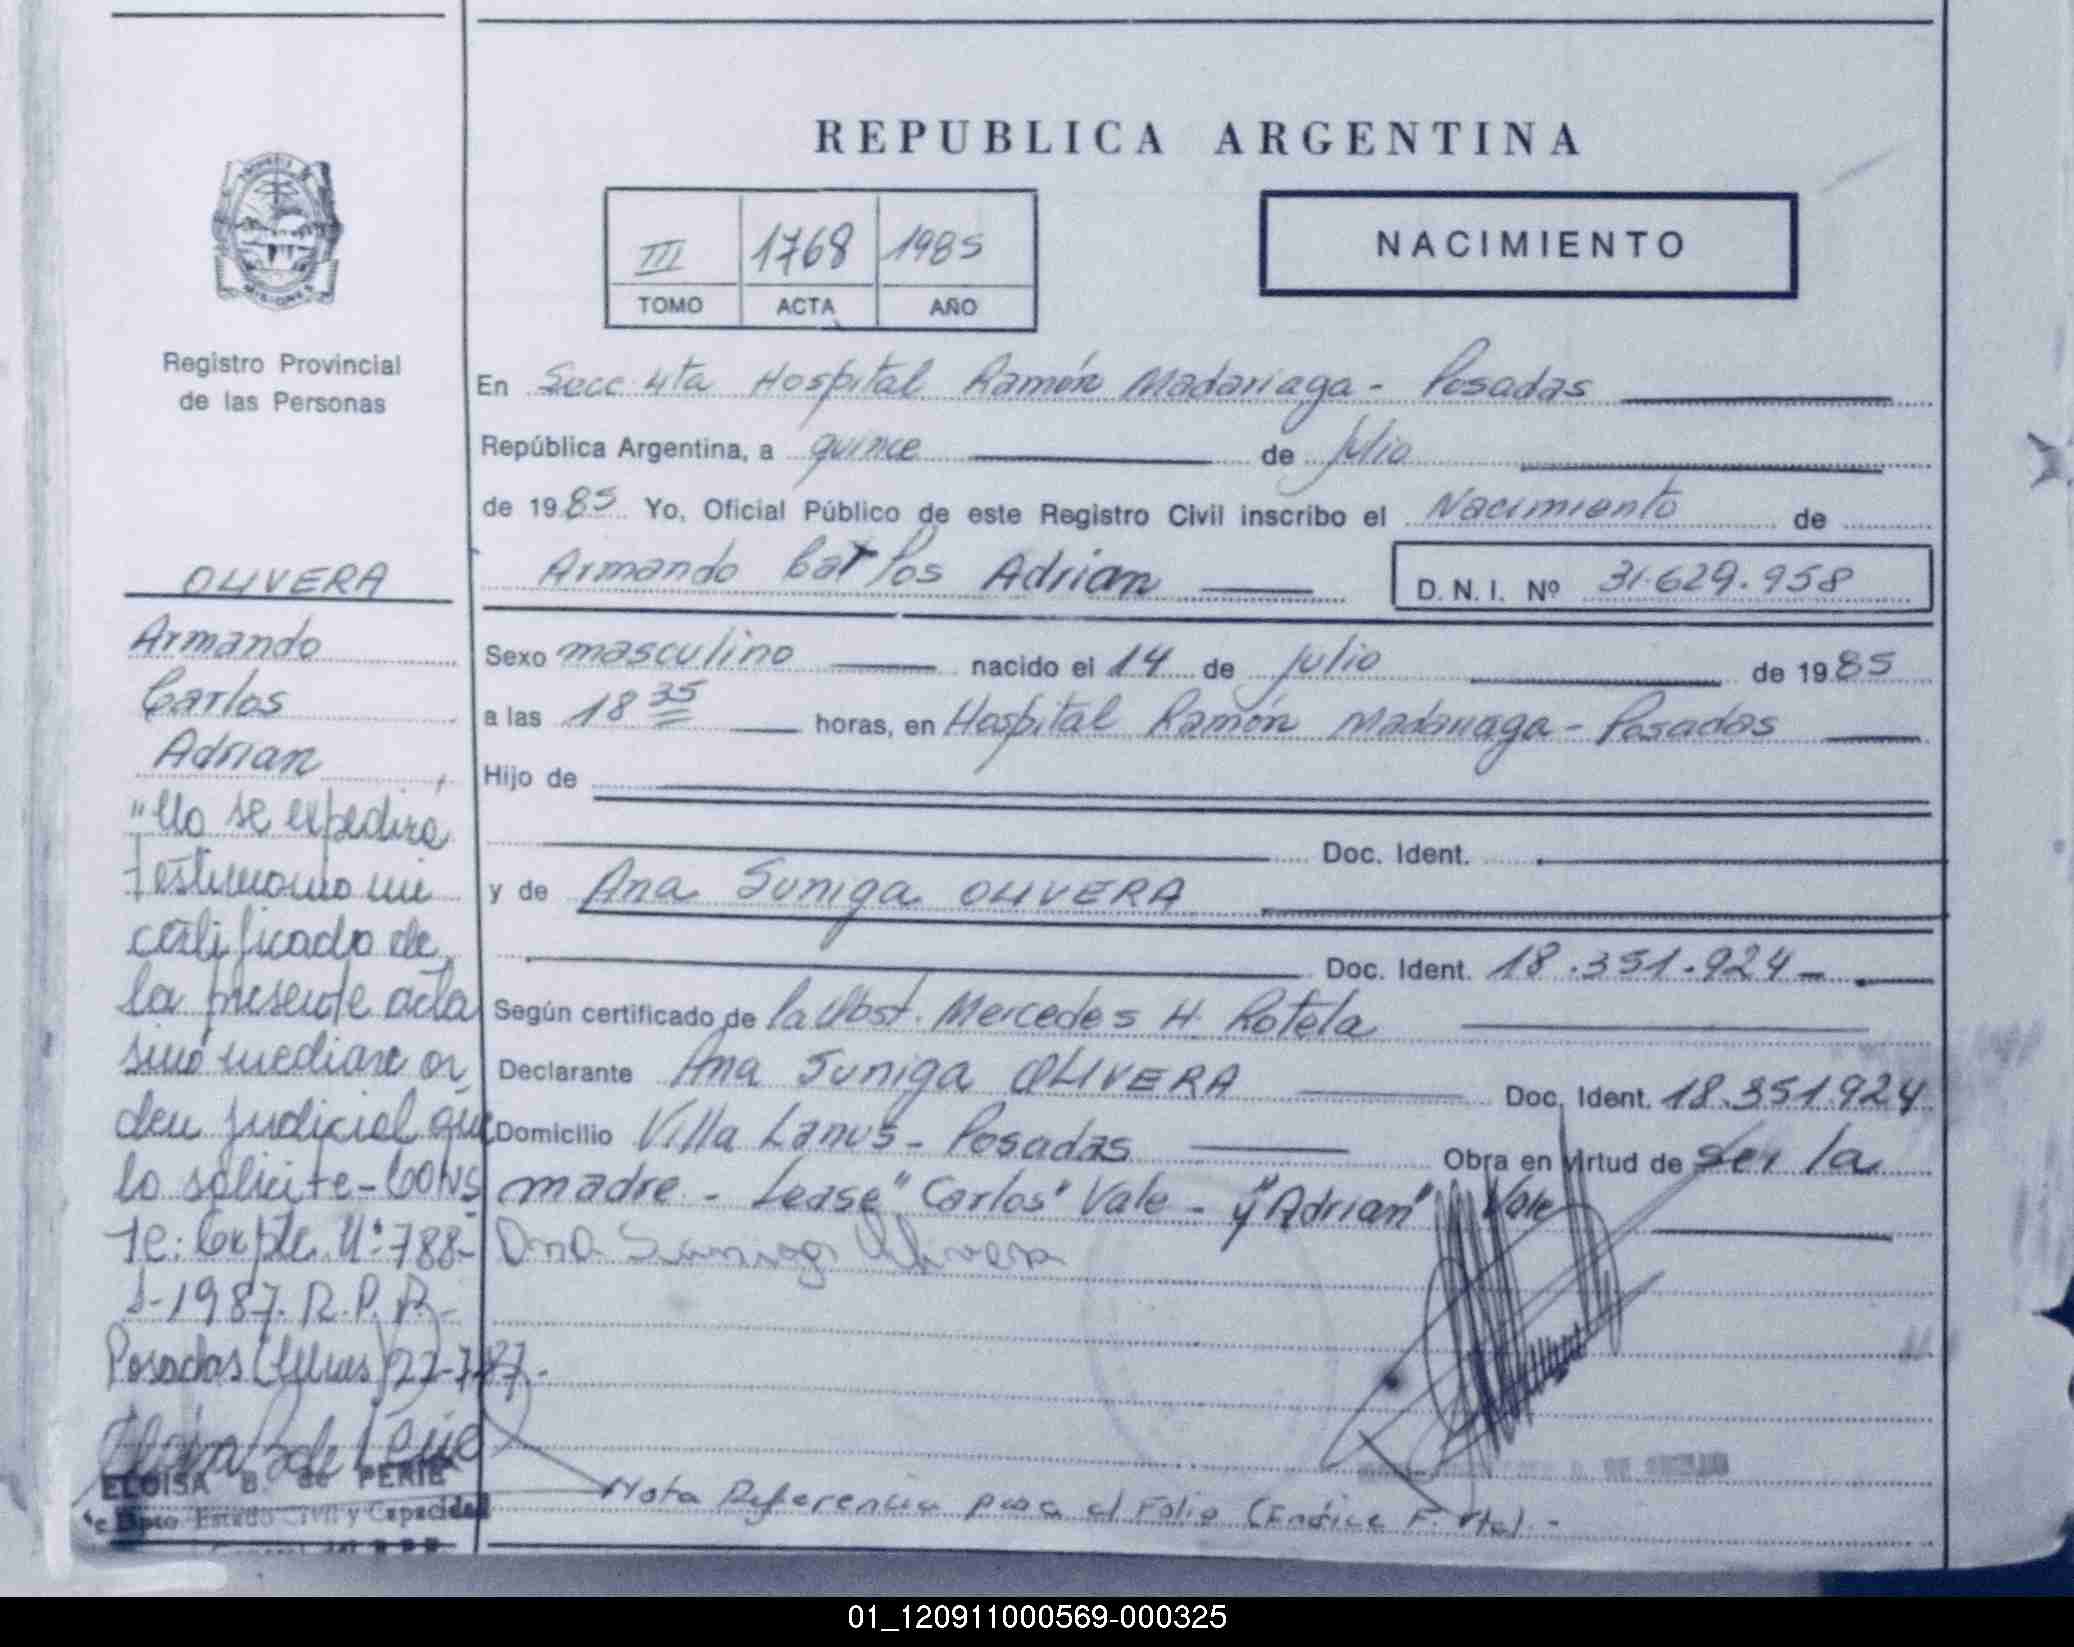 REPUBLICA ARGENTINA
III 1768 1985
TOMO ACTA AÑO
NACIMIENTO
MISIONES
Registro Provincial
de las Personas
OLIVERA
Armando
Carlos
Adrian
"No se expedirá
testimonio ni
certificado de
la presente acta
sinó mediare or
den judicial que
lo solicite-Cons
te: Expte. Nº 788-
1987. R.P.P.-
Posadas 22-7-87.-
ELOISA B. de PERIE
Dpto. Estado Civil y Capacidad
En Secc. 4ta Hospital Ramón Madariaga - Posadas
República Argentina, a quince de julio
de 1985 Yo, Oficial Público de este Registro Civil inscribo el Nacimiento de
Armando Carlos Adrian D.N.I. Nº 31.629.958
Sexo masculino nacido el 14 de julio de 1985
a las 18 35 horas, en Hospital Ramón Madariaga - Posadas
Hijo de
Doc. Ident.
y de Ana Suniga OLIVERA
Doc. Ident. 18.351.924-
Según certificado de la Obst. Mercedes H. Rotela
Declarante Ana Suniga OLIVERA Doc. Ident. 18.351.924
Domicilio Villa Lanus - Posadas Obra en virtud de ser la
madre - Lease "Carlos" Vale - y "Adrian" Vale
Ana Suniga Olivera
Nota Referencia para el Folio (Endice F. Vto). -
01_120911000569-000325